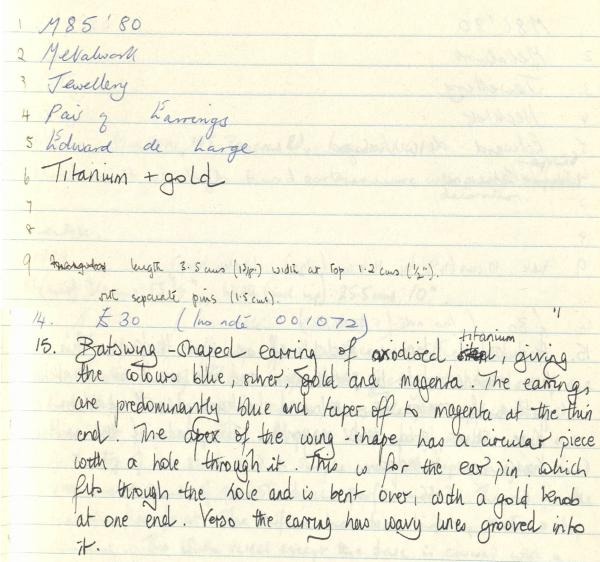 1 M85'80
2 Metalwork
3 Jewellery
4 Pair of Earrings
5 Edward de Large
6 Titanium + gold
7
8
9 length 3.5 cms (1 3/8") width at top 1.2 cms (1/2").
separate pins (1.5 cms).
14. £30 (Inv note 001072)
titanium
15. Batswing-shaped earring of oxodised steel, giving
the colours blue, silver, gold and magenta. The earrings
are predominantly blue and taper off to magenta at the thin
end. The apex of the wing-shape has a circular piece
with a hole through it. This is for the ear pin which
fits through the hole and is bent over, with a gold knob
at one end. Verso the earring has wavy lines grooved into
it.